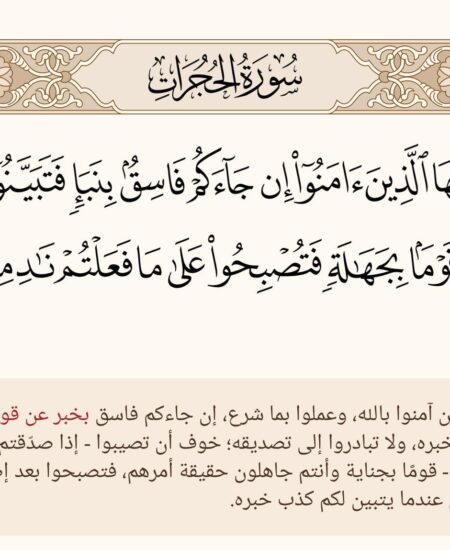 سُورَةُ الحُجُرَاتِ
ٱلَّذِينَ ءَامَنُوٓا۟ إِن جَآءَكُمْ فَاسِقٌۢ بِنَبَإٍ
بِجَهَٰلَةٍ فَتُصْبِحُوا۟ عَلَىٰ مَا فَعَلْتُمْ
آمنوا بالله، وعملوا بما شرع، إن جاءكم فاسق بخبر عن
خبره، ولا تبادروا إلى تصديقه؛ خوف أن تصيبوا - إذا صدّقتم
- قومًا بجناية وأنتم جاهلون حقيقة أمرهم، فتصبحوا بعد
عندما يتبين لكم كذب خبره.